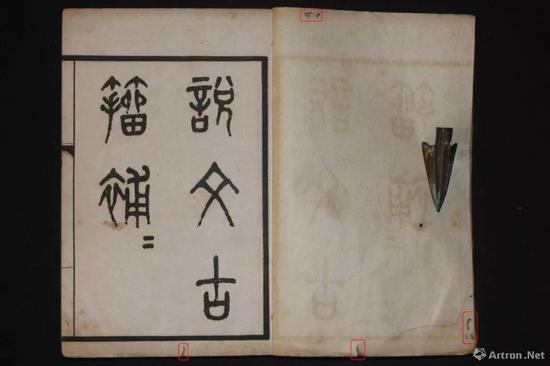 說文古
籀補〻
Artron.Net